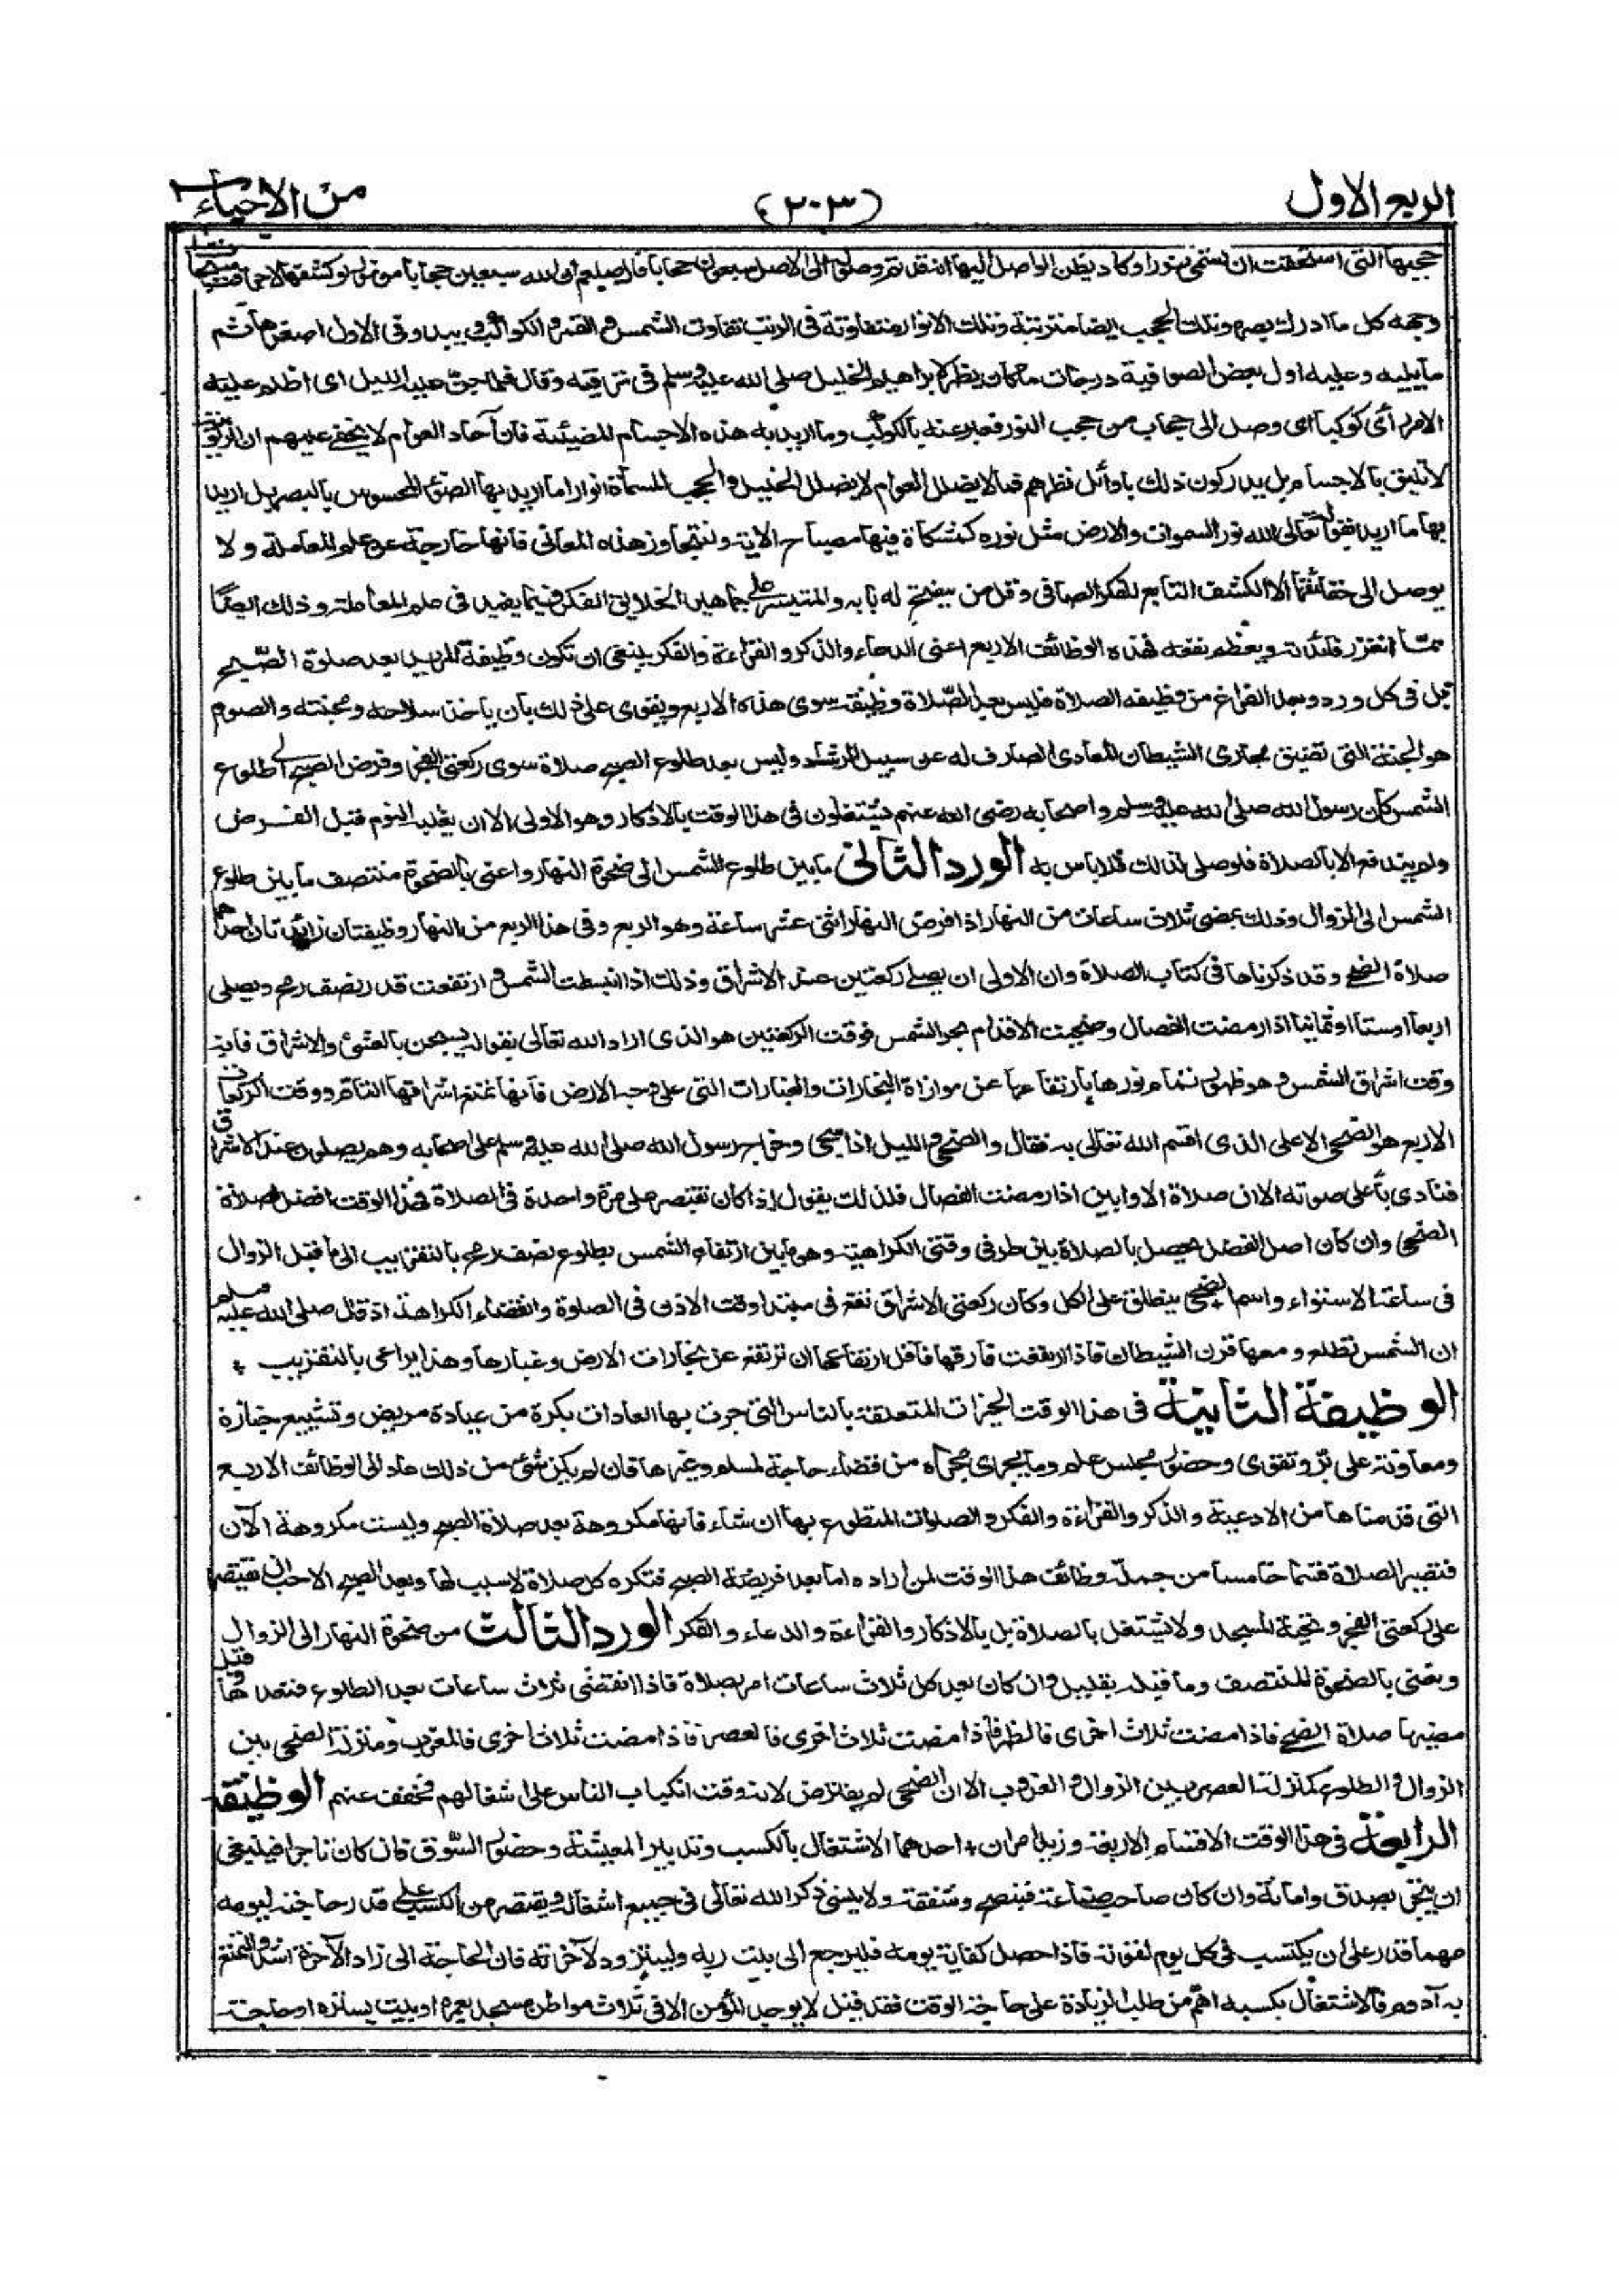 الربع الاول
(٢٠٣)
من الاحياء
حجبها التى استحقت ان تسمى نورا وكاد يظن الواصل اليها انه قد تم وصوله الى الاصل سبعون حجابا قال صلعم ان لله سبعين حجابا من نور لو كشفها لاحرقت سبحات
وجهه كل ما ادرك بصره وتلك الحجب ايضا مترتبة وتلك الانوار متفاوتة فى الرتب تفاوت الشمس والقمر والكواكب ويبدو فى الاول اصغرها ثم
ما يليه وعليه اول بعض الصوفية درجات ما كان يظهر لابراهيم الخليل صلى الله عليه وسلم فى ترقيه وقال فلما جن عليه الليل اى اظلم عليه
الامر رأى كوكبا اى وصل الى حجاب من حجب النور فعبر عنه بالكوكب وما اريد به هذه الاجسام المضيئة فان آحاد العوام لا يخفى عليهم ان الربوبية
لا تليق بالاجسام بل يدركون ذلك باوائل نظرهم فما لا يضلل العوام لا يضلل الخليل والحجب المسماة انوارا ما اريد بها الضوء المحسوس بالبصر بل اريد
بها ما اريد بقوله تعالى الله نور السموات والارض مثل نوره كمشكاة فيها مصباح الاية ولنتجاوز هذه المعانى فانها خارجة عن علم المعاملة ولا
يوصل الى حقائقها الا الكشف التابع للفكر الصافى وقل من ينفتح له بابه والمتيسر على جماهير الخلائق الفكر فيما يفيد فى علم المعاملة وذلك ايضا
مما تغزر فائدته ويعظم نفعه فهذه الوظائف الاربع اعنى الدعاء والذكر والقراءة والفكر ينبغى ان تكون وظيفة المريد بعد صلوة الصبح
بل فى كل ورد وبعد الفراغ من وظيفه الصلاة فليس بعد الصلاة وظيفة سوى هذه الاربع ويقوى على ذلك بان ياخذ سلاحه ومجنته والصوم
هو الجنة التى تضيق مجارى الشيطان المعادى الصارف له عن سبيل الرشاد وليس بعد طلوع الصبح صلاة سوى ركعتى الفجر وفرض الصبح الى طلوع
الشمس كان رسول الله صلى الله عليه وسلم واصحابه رضى الله عنهم يشتغلون فى هذا الوقت بالاذكار وهو الاولى الا ان يغلبه النوم قبل الفرض
ولم يندفع الا بالصلاة فلو صلى لذلك فلا باس به الورد الثانى ما بين طلوع الشمس الى ضحوة النهار واعنى بالضحوة منتصف ما بين طلوع
الشمس الى الزوال وذلك بمضى ثلاث ساعات من النهار اذا فرض النهار اثنى عشر ساعة وهو الربع وفى هذا الربع من النهار وظيفتان زائدتان احداهما
صلاة الضحى وقد ذكرناها فى كتاب الصلاة وان الاولى ان يصلى ركعتين عند الاشراق وذلك اذا انبسطت الشمس وارتفعت قدر نصف رمح ويصلى
اربعا او ستا او ثمانيا اذا رمضت الفصال وضحيت الاقدام بحر الشمس فوقت الركعتين هو الذى اراد الله تعالى بقوله يسبحن بالعشى والاشراق فانه
وقت اشراق الشمس وهو ظهور تمام نورها بارتفاعها عن موازاة البخارات والغبارات التى على وجه الارض فانها تمنع اشراقها التام ووقت الركعات
الاربع هو الضحى الاعلى الذى اقسم الله تعالى به فقال والضحى والليل اذا سجى وخرج رسول الله صلى الله عليه وسلم على اصحابه وهم يصلون عند الاشراق
فنادى بأعلى صوته الا ان صلاة الاوابين اذا رمضت الفصال فلذلك يقول اذا كان يقتصر على مرة واحدة فى الصلاة فهذا الوقت افضل لصلاة
الضحى وان كان اصل الفضل يحصل بالصلاة بين طرفى وقتى الكراهية وهو ما بين ارتفاع الشمس بطلوع نصف رمح بالتقريب الى ما قبل الزوال
فى ساعة الاستواء واسم الضحى ينطلق على الكل وكأن ركعتى الاشراق تقع فى مبتدا وقت الاذن فى الصلوة وانقضاء الكراهة اذ قال صلى الله عليه وسلم
ان الشمس تطلع ومعها قرن الشيطان فاذا ارتفعت فارقها فاقل ارتفاعها ان ترتفع عن بخارات الارض وغبارها وهذا يراعى بالتقريب
الوظيفة الثانية فى هذا الوقت الخيرات المتعلقة بالناس التى جرت بها العادات بكرة من عيادة مريض وتشييع جنازة
ومعاونة على بر وتقوى وحضور مجلس علم وما يجرى مجراه من قضاء حاجة لمسلم وغيرها فان لم يكن شئ من ذلك عاد الى الوظائف الاربع
التى قدمناها من الادعية والذكر والقراءة والفكر والصلوات المتطوع بها ان شاء فانها مكروهة بعد صلاة الصبح وليست مكروهة الآن
فتصير الصلاة قسما خامسا من جملة وظائف هذا الوقت لمن اراده اما بعد فريضة الصبح فتكره كل صلاة لا سبب لها وبعد الصبح الاحب ان يقتصر
على ركعتى الفجر وتحية المسجد ولا يشتغل بالصلاة بل بالاذكار والقراءة والدعاء والفكر الورد الثالث من ضحوة النهار الى الزوال
ونعنى بالضحوة المنتصف وما قبله بقليل وان كان بعد كل ثلاث ساعات امر بصلاة فاذا انقضى ثلاث ساعات بعد الطلوع فعندها وقبل
مضيها صلاة الضحى فاذا مضت ثلاث اخرى فالظهر فاذا مضت ثلاث اخرى فالعصر فاذا مضت ثلاث اخرى فالمغرب ومنزلة الضحى بين
الزوال والطلوع كمنزلة العصر بين الزوال والغروب الا ان الضحى لم يفترض لانه وقت انكباب الناس على اشغالهم فخفف عنهم الوظيفة
الرابعة فى هذا الوقت الاقسام الاربعة وزيد امران احدهما الاشتغال بالكسب وتدبير المعيشة وحضور السوق فان كان تاجرا فينبغى
ان يتجر بصدق وامانة وان كان صاحب صناعة فبنصح وشفقة ولا ينسى ذكر الله تعالى فى جميع اشغاله ويقتصر من الكسب على قدر حاجته ليومه
مهما قدر على ان يكتسب فى كل يوم لقوته فاذا حصل كفاية يومه فليرجع الى بيت ربه وليتزود لآخرته فان الحاجة الى زاد الآخرة اشد والتمتع
به ادوم فالاشتغال بكسبه اهم من طلب الزيادة على حاجة الوقت فقد قيل لا يوجد المؤمن الا فى ثلاث مواطن مسجد يعمره او بيت يستره او حاجة